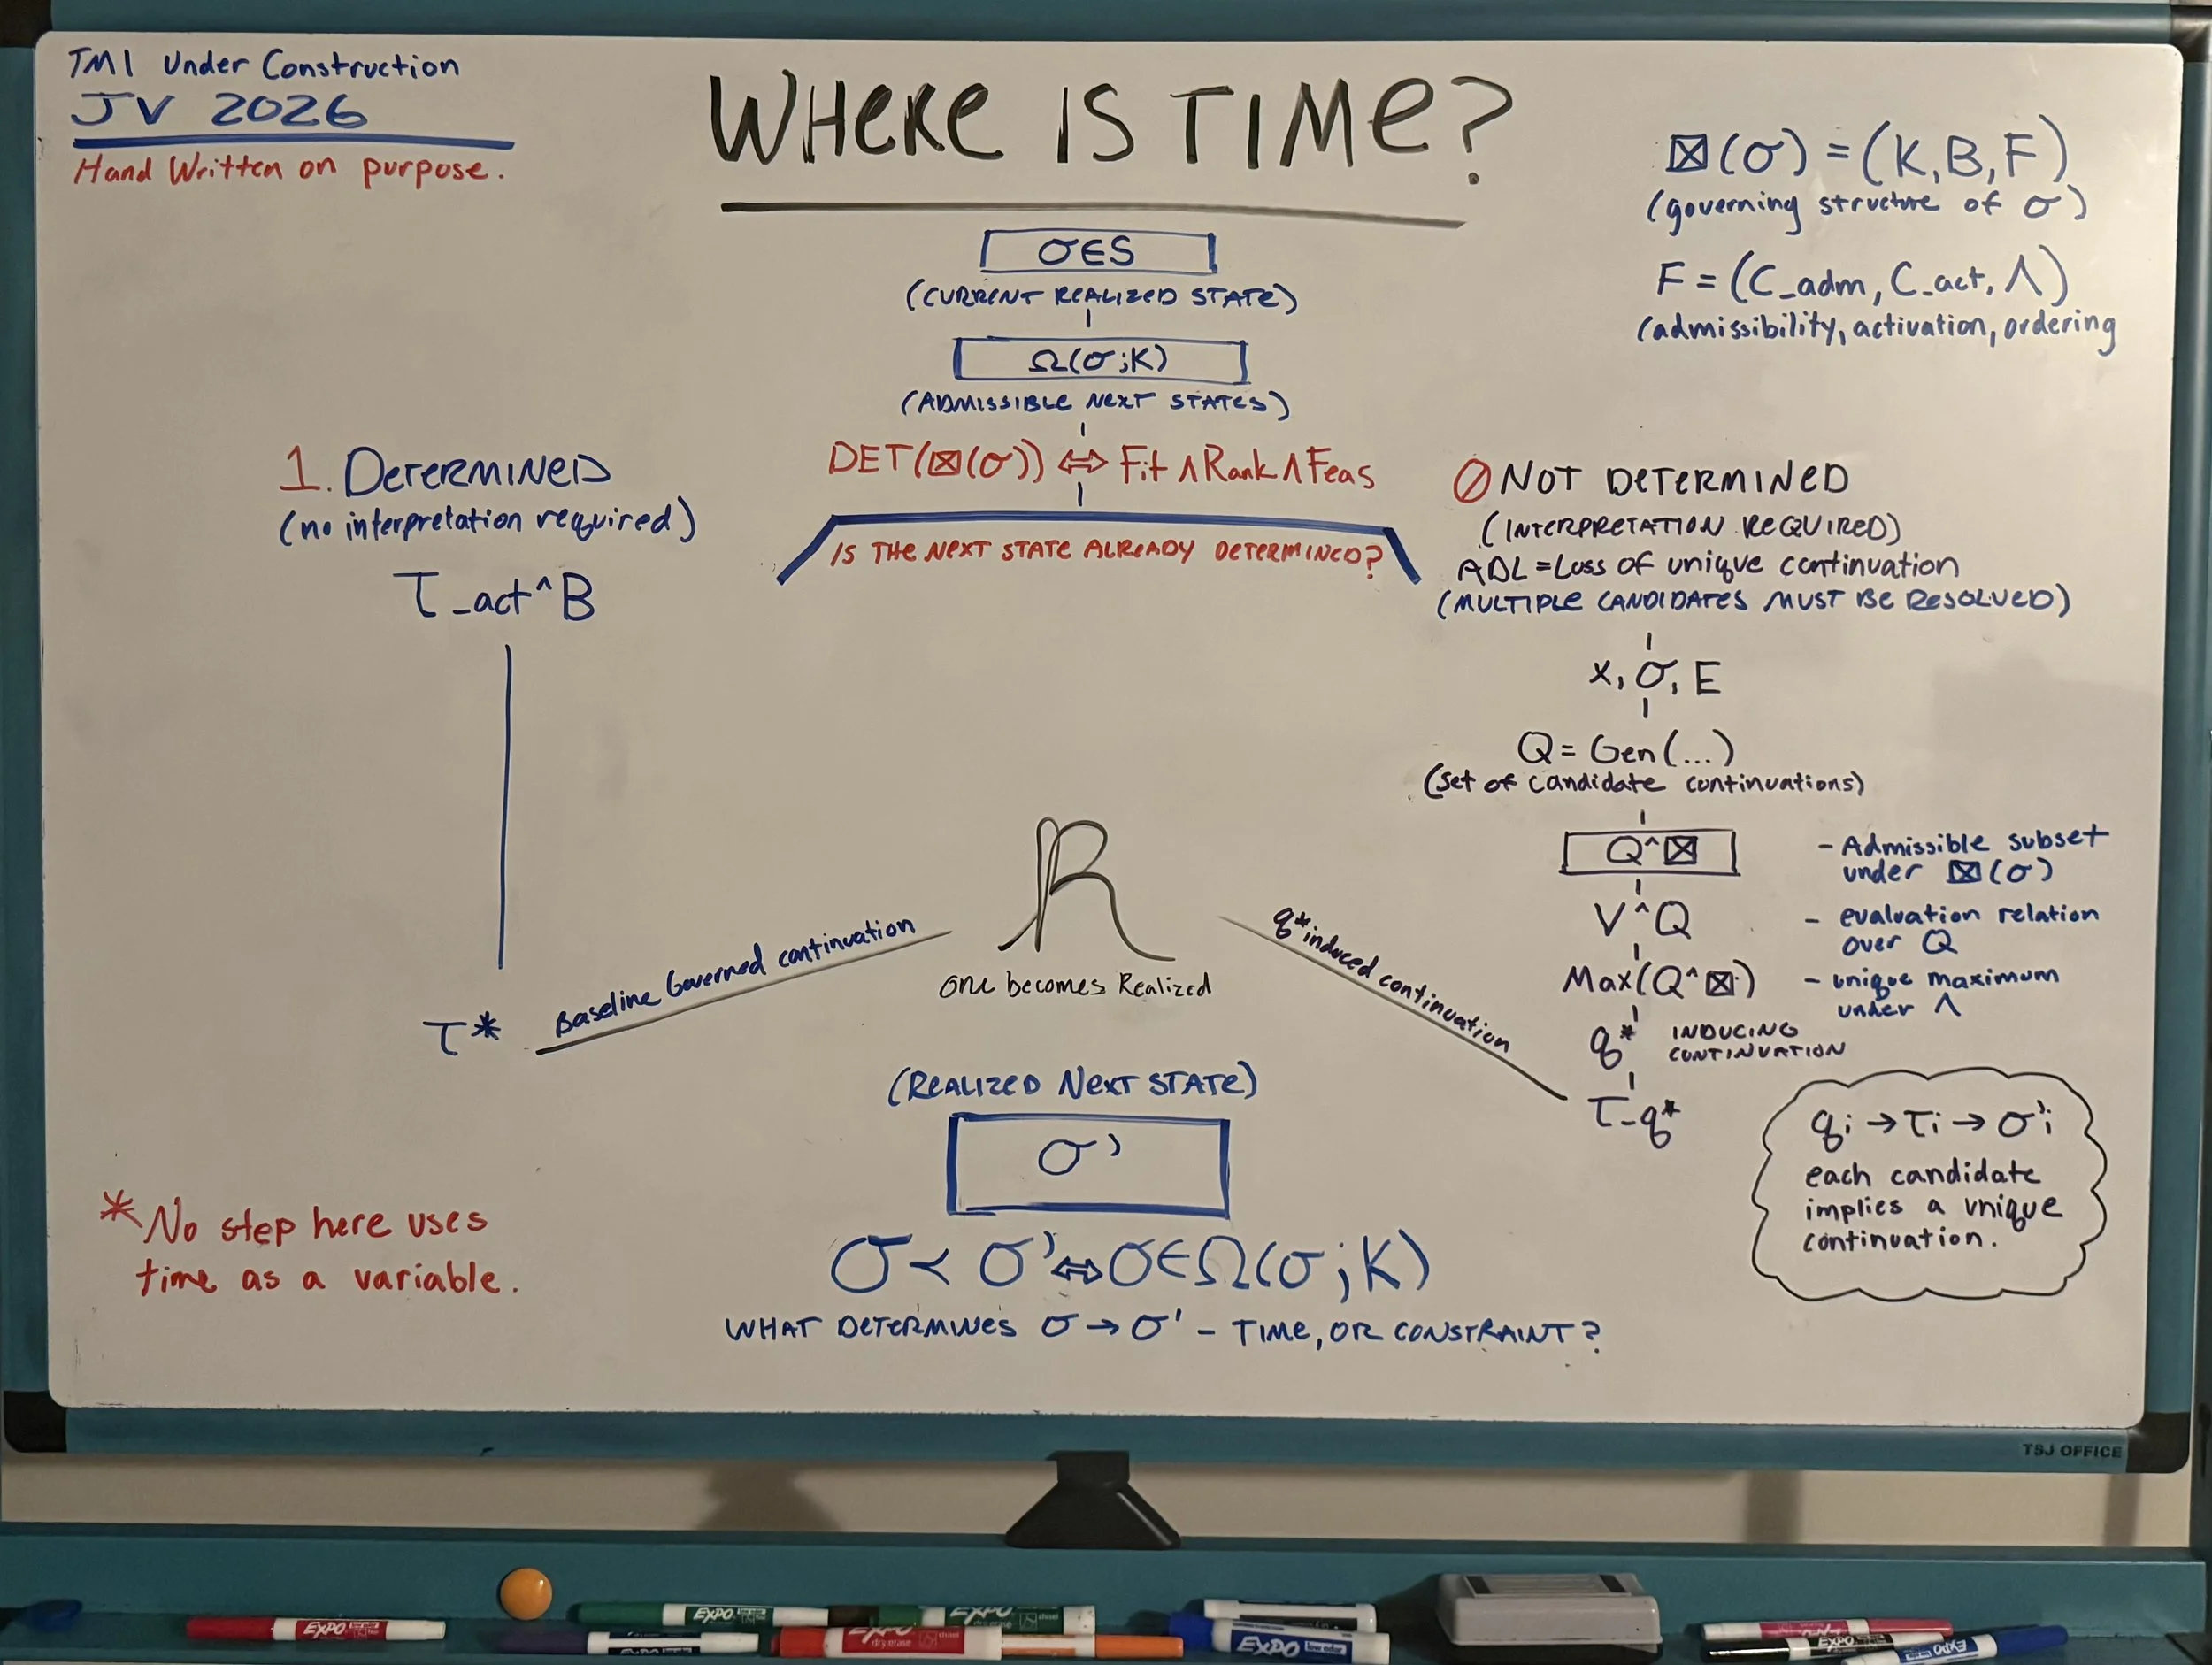 TMI Under Construction
JV 2026
Hand Written on purpose.
WHERE IS TIME?
⊠(σ) = (K, B, F)
(governing structure of σ)
F = (C_adm, C_act, Λ)
(admissibility, activation, ordering
σ∈S
(CURRENT REALIZED STATE)
Ω(σ;K)
(ADMISSIBLE NEXT STATES)
DET(⊠(σ)) ⇔ Fit ∧ Rank ∧ Feas
IS THE NEXT STATE ALREADY DETERMINED?
1. DETERMINED
(no interpretation required)
τ_act^B
τ*
Baseline Governed continuation
∅ NOT DETERMINED
(INTERPRETATION REQUIRED)
ADL = Loss of unique continuation
(MULTIPLE CANDIDATES MUST BE RESOLVED)
x, σ, E
Q = Gen(...)
(set of candidate continuations)
Q^⊠
- Admissible subset
under ⊠(σ)
V^Q
- evaluation relation
over Q
Max(Q^⊠)
- unique maximum
under Λ
q* INDUCING
CONTINUATION
τ_q*
q* induced continuation
qi → τi → σ'i
each candidate
implies a unique
continuation.
R
One becomes Realized
(REALIZED NEXT STATE)
σ'
σ < σ' ⇔ σ∈Ω(σ;K)
WHAT DETERMINES σ → σ' - TIME, OR CONSTRAINT?
* No step here uses
time as a variable.
TSJ OFFICE
EXPO
EXPO
EXPO
EXPO
dry erase
EXPO
EXPO
EXPO
EXPO